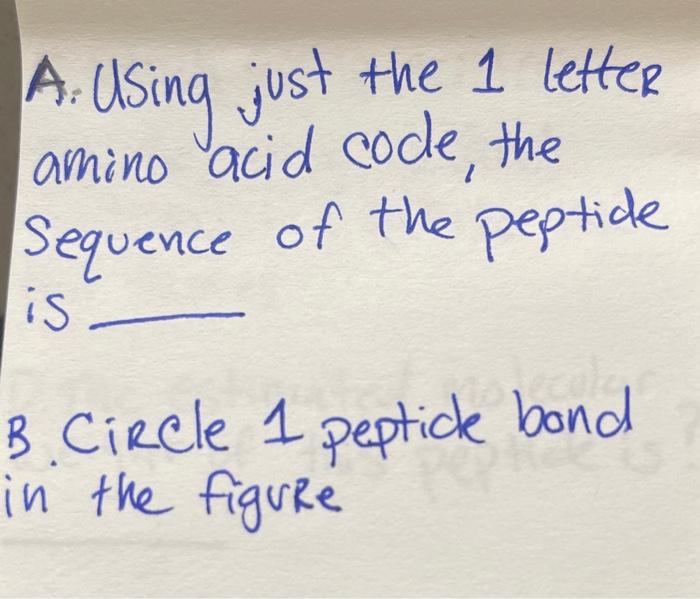 A. Using just the 1 letter
amino acid code, the
Sequence of the peptide
is ______
B. Circle 1 peptide bond
in the figure